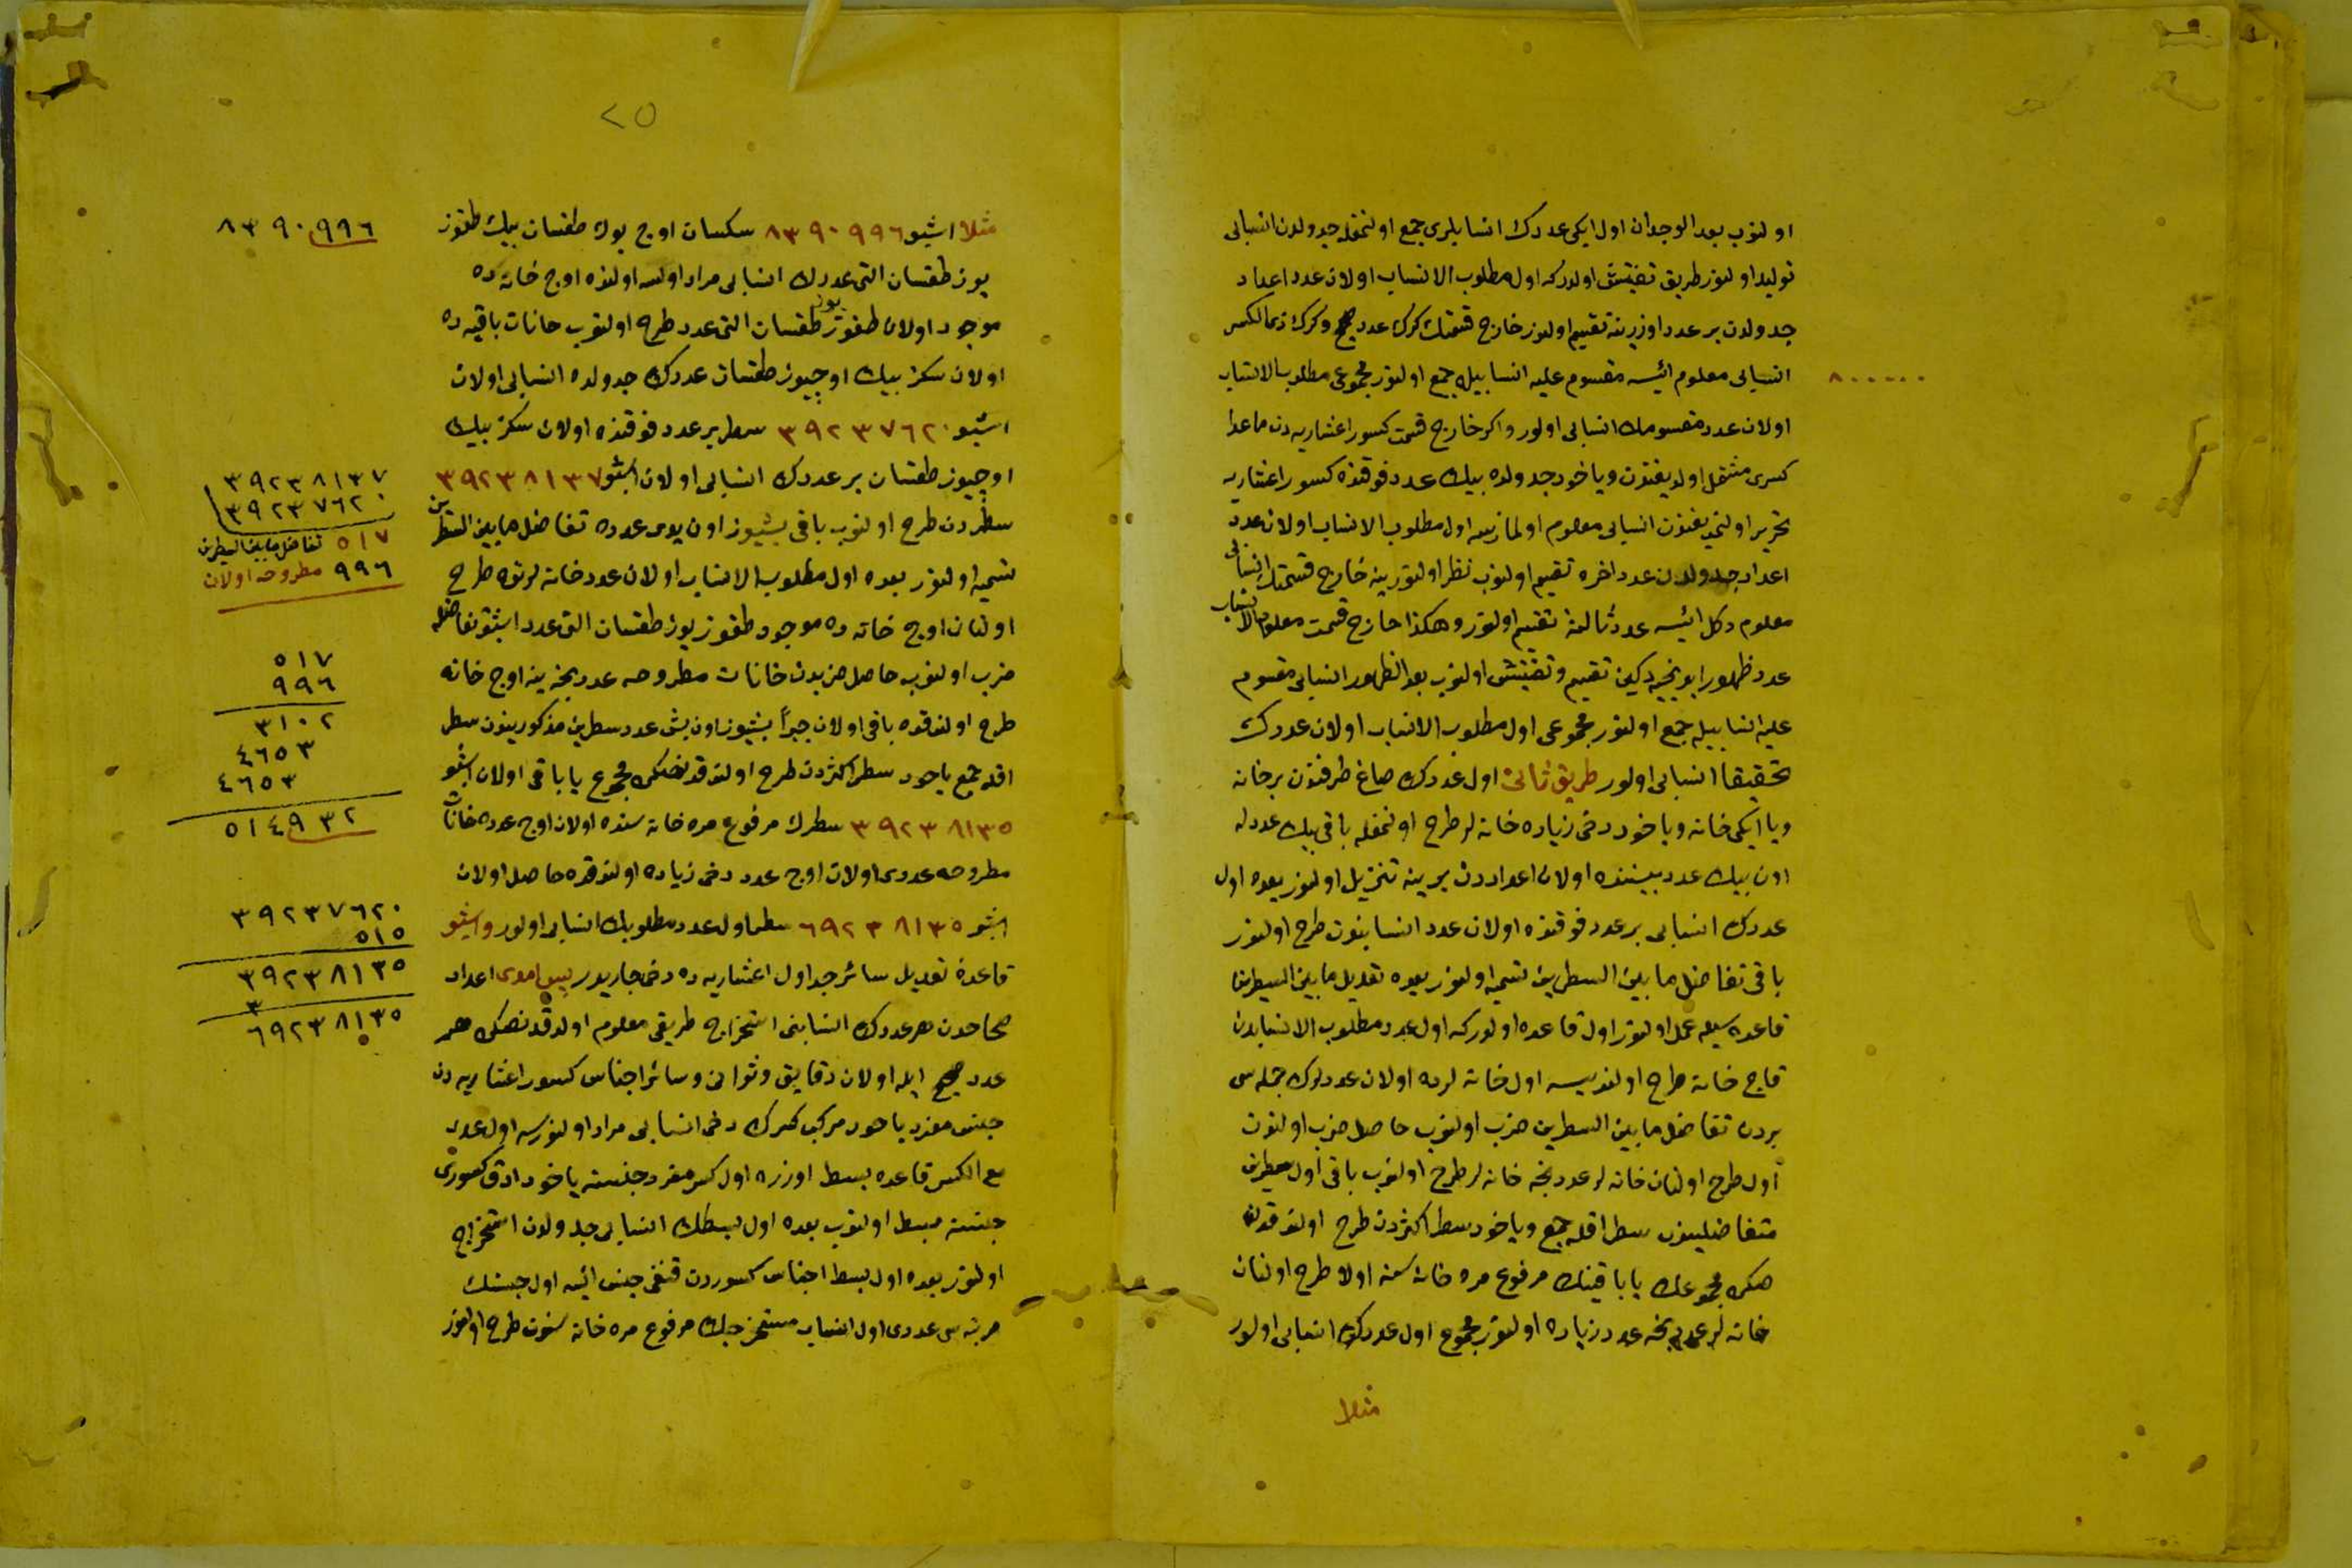 اولنوب بعد الوجدان اول ایکی عددك انسابلری جمع اولنمغله جدولدن انسابی
تولید اولنور طریق تفتیش اولدرکه اول مطلوب الانساب اولان عدد اعداد
جدولدن بر عدد اوزرینه تقسیم اولنور خارج قسمتك كرك عدد صحیح و كرك ذی الکسر
انسابی معلوم ایسه مقسوم علیه انسابیله جمع اولنور مجموعی مطلوب الانساب
٨٠٠٠٠٠
اولان عدد مقسومك انسابی اولور و اکر خارج قسمت کسور اعشاریه دن ماعدا
کسری مشتمل اولدیغندن ویاخود جدولده بیك عدد فوقنده کسور اعشاریه
تحریر اولنمدیغندن انسابی معلوم اولمازیسه اول مطلوب الانساب اولان عدد
اعداد جدولدن عدد اخره تقسیم اولنوب نظر اولنور ینه خارج قسمتك انسابی
معلوم دکل ایسه عدد ثالثه تقسیم اولنور وهکذا خارج قسمت معلوم الانساب
عدد ظهور ایدنجیه دکین تقسیم و تفتیش اولنوب بعد الظهور انسابی مقسوم
علیه انسابیله جمع اولنور مجموعی اول مطلوب الانساب اولان عددك
تحقیقا انسابی اولور طریق ثانی اول عددك صاغ طرفندن بر خانه
ویا ایکی خانه ویاخود دخی زیاده خانه لر طرح اولنمغله باقی بیك عددله
اون بیك عدد بیننده اولان اعداددن برینه تنزیل اولنور بعده اول
عددك انسابی بر عدد فوقنده اولان عدد انسابندن طرح اولنور
باقی تفاضل ما بین السطرین تسمیه اولنور بعده تعدیل ما بین السطرین
قاعده سیله عمل اولنور اول قاعده اولدرکه اول عدد مطلوب الانسابدن
قاچ خانه طرح اولندیسه اول خانه لرده اولان عددلرك جمله سی
بردن تفاضل ما بین السطرین ضرب اولنوب حاصل ضرب اولندن
اول طرح اولنان خانه لر عددنجه خانه لر طرح اولنوب باقی اول سطرین
متفاضلیندن سطر اقله جمع ویاخود سطر اکثردن طرح اولندقدن
صکره مجموعك یا باقینك مرفوع مره خانه سنه اولا طرح اولنان
خانه لر عددنجه عدد زیاده اولنور مجموع اول عددك انسابی اولور
مثلا
٢٥
مثلا اشبو ٨٣٩٠٩٩٦ سکسان اوچ یوك طقسان بیك طقوز
٨٣٩٠٩٩٦
یوز طقسان التی عددك انسابی مراد اولسه اولنده اوچ خانه ده
موجود اولان طقوز یوز طقسان التی عدد طرح اولنوب خانات باقیه ده
اولان سکز بیك اوچیوز طقسان عددك جدولده انسابی اولان
اشبو ٣٩٢٣٧٦٢٠ سطر بر عدد فوقنده اولان سکز بیك
اوچیوز طقسان بر عددك انسابی اولان اشبو ٣٩٢٣٨١٣٧
سطردن طرح اولنوب باقی بشیوز اون یدی عدده تفاضل ما بین السطرین
تسمیه اولنور بعده اول مطلوب الانساب اولان عدد خانه لرندن طرح
اولنان اوچ خانه ده موجود طقوز یوز طقسان التی عدد اشبو تفاضله
ضرب اولنوب حاصل ضربدن خانات مطروحه عددنجه ینه اوچ خانه
طرح اولندقده باقی اولان جبراً بشیوز اون بش عدد سطرین مذکوریندن سطر
اقله جمع یاخود سطر اکثردن طرح اولندقدنصکره مجموع یا باقی اولان اشبو
٣٩٢٣٨١٣٥ سطرك مرفوع مره خانه سنده اولان اوچ عدده خانات
مطروحه عددی اولان اوچ عدد دخی زیاده اولندقده حاصل اولان
اشبو ٦٩٢٣٨١٣٥ سطر اول عدد مطلوبك انسابی اولور و اشبو
قاعدۀ تعدیل سائر جداول اعشاریه ده دخی جاریدر اعداد
صحاحدن هر عددك انسابنی استخراج طریقی معلوم اولدقدنصکره هر
عدد صحیح ایله اولان دقایق و ثوانی و سائر اجناس کسور اعشاریه دن
جنس مفرد یاخود مرکب کسرك دخی انسابی مراد اولنورسه اول عدد
مع الکسر قاعده بسط اوزره اول کسر مفرد جنسنه یاخود ادق کسوری
جنسنه بسط اولنوب بعده اول بسطك انسابی جدولدن استخراج
اولنور بعده اول بسط اجناس کسوردن قنغی جنس ایسه اول جنسك
مرتبه سی عددی اول انساب مستخرجك مرفوع مره خانه سندن طرح اولنور
٣٩٢٣٨١٣٧
٣٩٢٣٧٦٢٠
٥١٧ تفاضل ما بین السطرین
٩٩٦ مطروحه اولان
٥١٧
٩٩٦
٣١٠٢
٤٦٥٣
٤٦٥٣
٥١٤٩٣٢
٣٩٢٣٧٦٢٠
٥١٥
٣٩٢٣٨١٣٥
٣
٦٩٢٣٨١٣٥